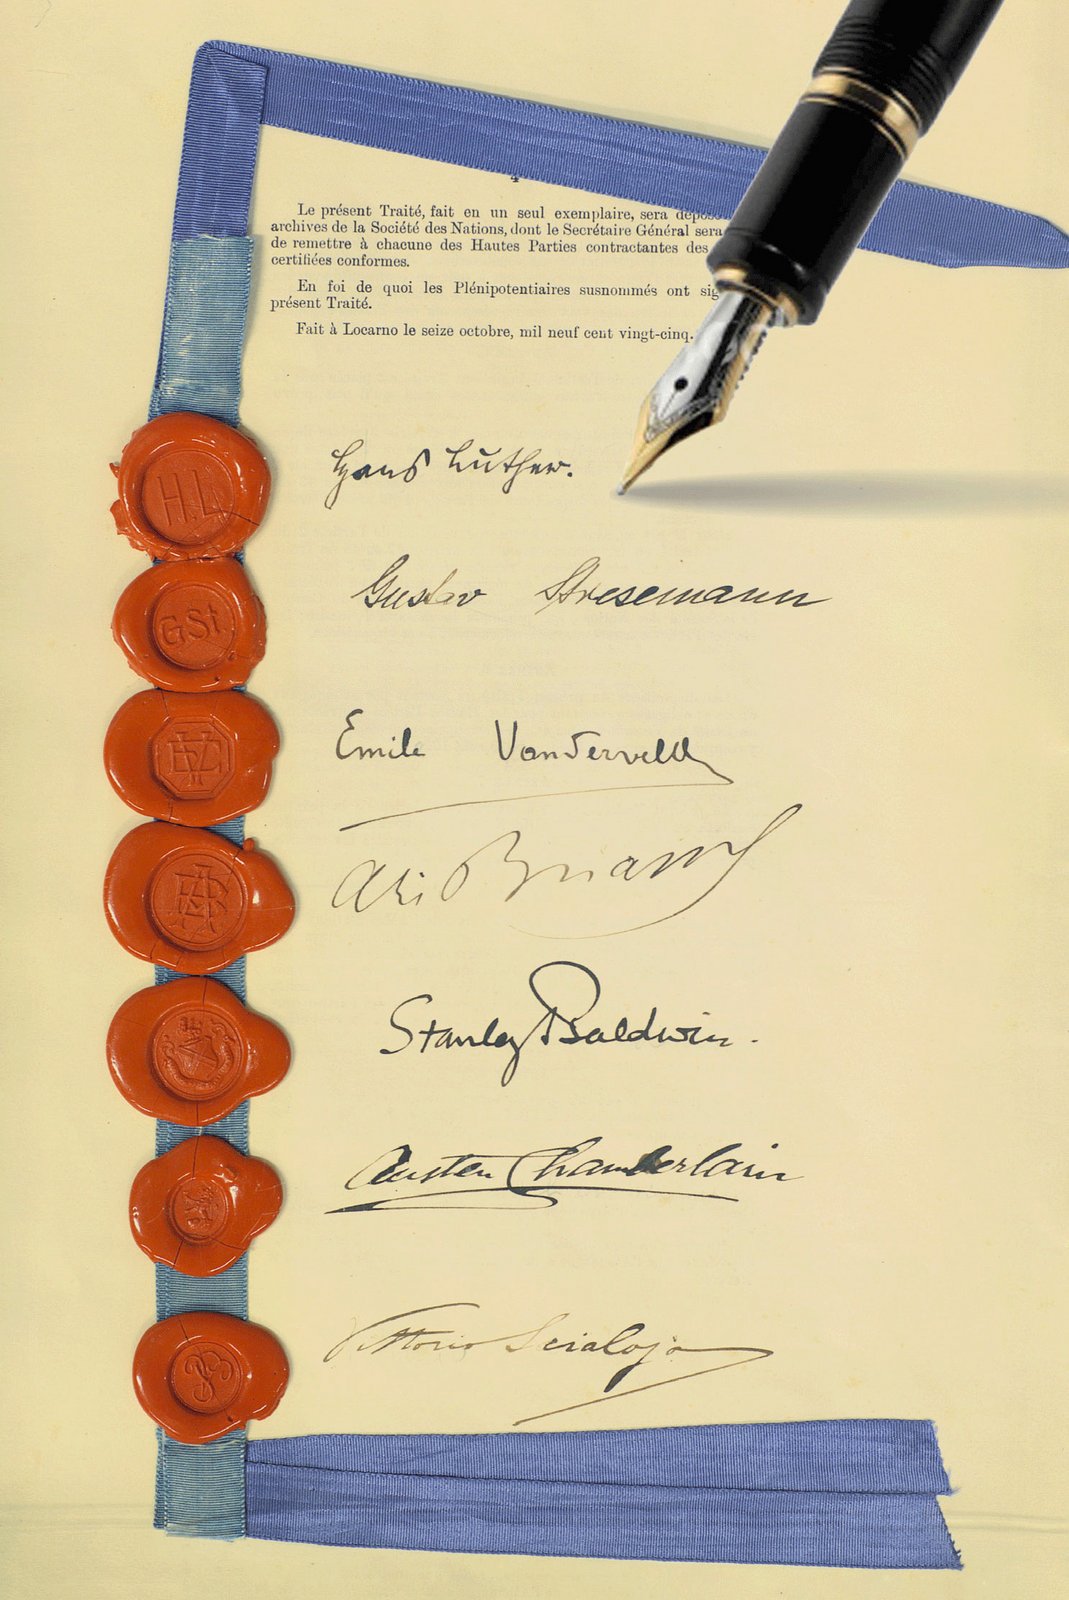 4
Le présent Traité, fait en un seul exemplaire, sera
archives de la Société des Nations, dont le Secrétaire Général sera
de remettre à chacune des Hautes Parties contractantes des
certifiées conformes.
En foi de quoi les Plénipotentiaires susnommés ont
présent Traité.
Fait à Locarno le seize octobre, mil neuf cent vingt-cinq.
H.L
Hans Luther.
GSt
Gustav Stresemann
Emile Vandervelde
Ari Briand
Stanley Baldwin.
Austen Chamberlain
Vittorio Scialoja